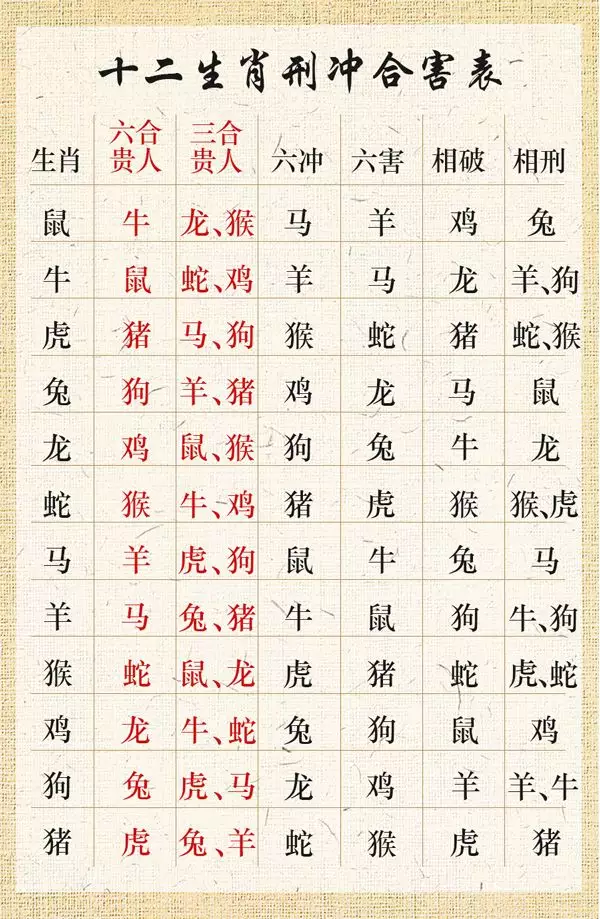 十二生肖刑冲合害表
生肖 六合贵人 三合贵人 六冲 六害 相破 相刑
鼠 牛 龙、猴 马 羊 鸡 兔
牛 鼠 蛇、鸡 羊 马 龙 羊、狗
虎 猪 马、狗 猴 蛇 猪 蛇、猴
兔 狗 羊、猪 鸡 龙 马 鼠
龙 鸡 鼠、猴 狗 兔 牛 龙
蛇 猴 牛、鸡 猪 虎 猴 猴、虎
马 羊 虎、狗 鼠 牛 兔 马
羊 马 兔、猪 牛 鼠 狗 牛、狗
猴 蛇 鼠、龙 虎 猪 蛇 虎、蛇
鸡 龙 牛、蛇 兔 狗 鼠 鸡
狗 兔 虎、马 龙 鸡 羊 羊、牛
猪 虎 兔、羊 蛇 猴 虎 猪